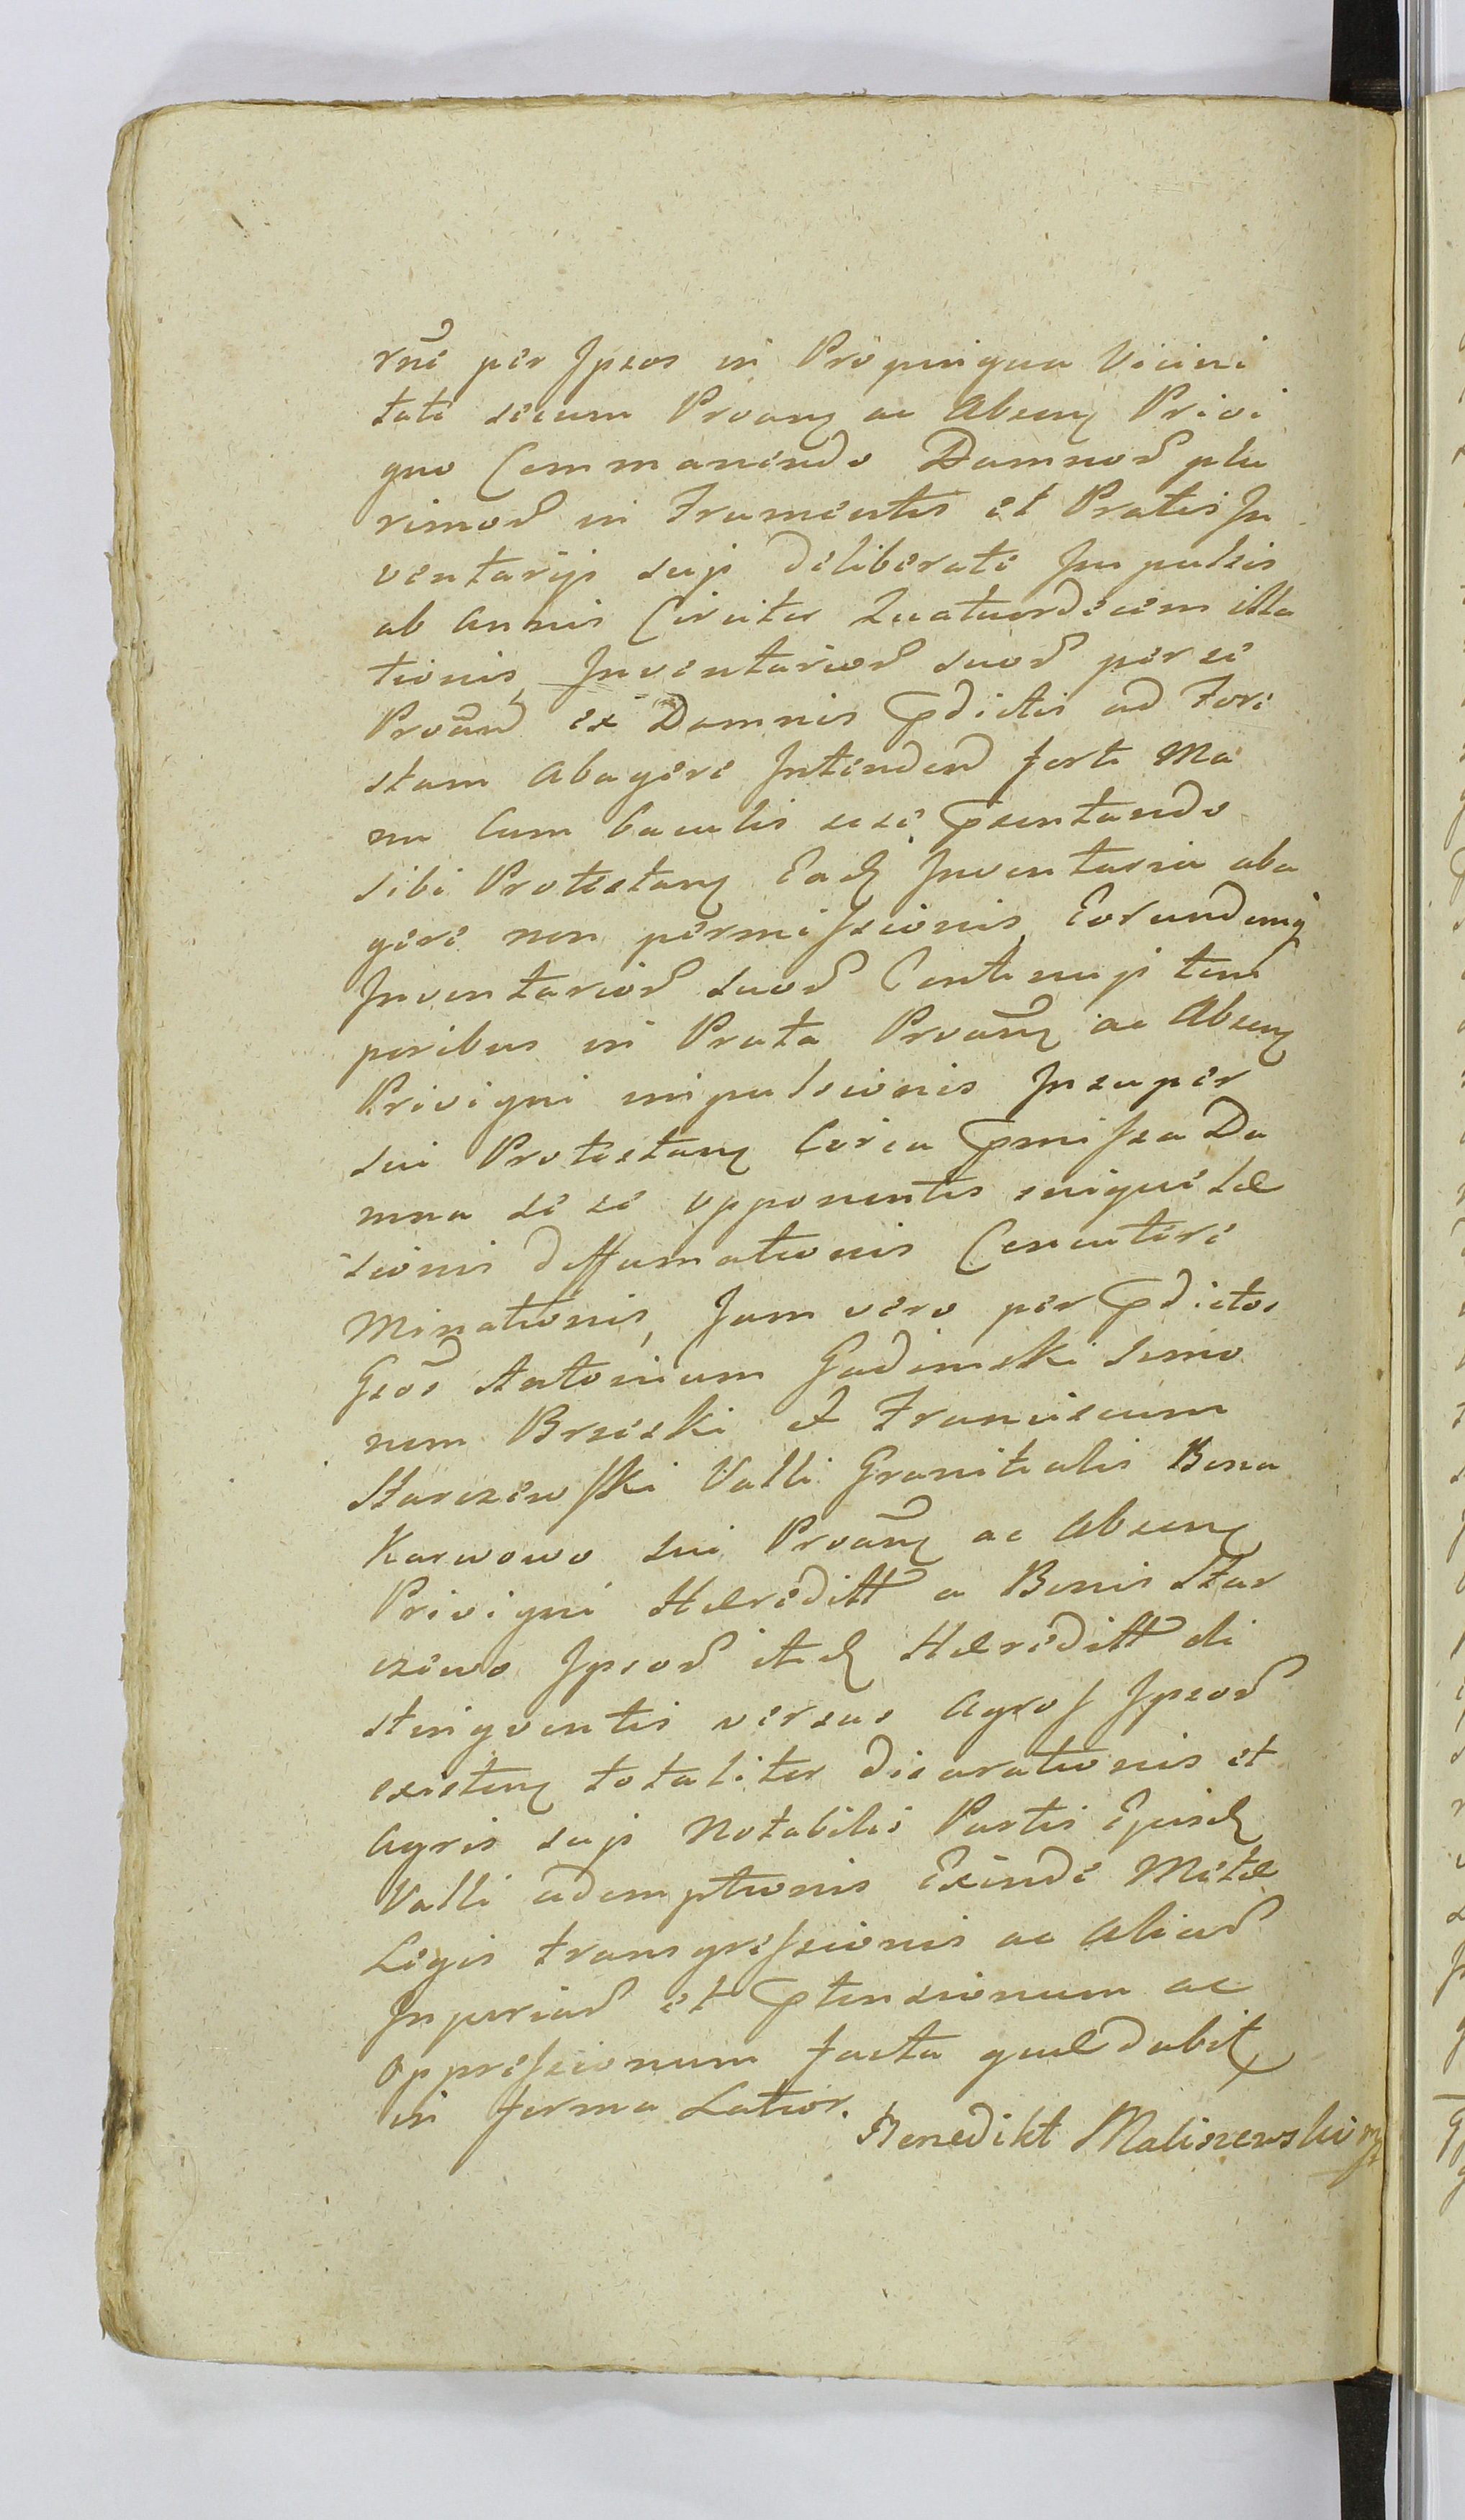 rñe per Ipsos in Propinqua Vicini
tate secum Proanꝫ ac Absenꝫ Privi
gno Commanendo Damnoꝝ plu
rimoꝝ in Frumentis et Pratis In
ventarijs suis deliberate Impulsis
ab Annis Circiter Quatuordecim illa
tionis, Inventarioꝝ suoꝝ per se
Proanꝺ ex Damnis p̄dictis ad Fore
stam Abagere Intendenꝺ forti Ma
nu Cum baculis sese p̄sentando
sibi Protestanꝫ Eadꝫ Inventaria aba
gere non permissionis, Eorundemq̨
Inventarioꝝ suoꝝ Continuis tem
poribus in Prata Proanꝫ ac Absenꝫ
Privigni impulsionis Insuper
sui Protestanꝫ Circa p̄missa Da
mna se se opponentis suique læ
sionis diffamationis Concutere
Minationis, Jam vero per p̄dictos
Gsos Antonium Godlewski Simo
nem Brzeski et Franciscum
Starczewski Valli Granitialis Bona
Karwowo sui Proanꝫ ac Absenꝫ
Privigni Hæreditt a Bonis Star
czewo Ipsoꝝ itidꝫ Hæreditt di
stingventis versus Agros Ipsoꝝ
existenꝫ totaliter disarationis et
Agris suis Notabilis Partis Ejusdꝫ
Valli ademptionis Exinde Metæ
Legis transgressionis ac Aliaꝝ
Injuriaꝝ et p̄tensionum ac
oppressionum facta quæ dabit
in forma Latior.
Benedikt Maliszewski mp